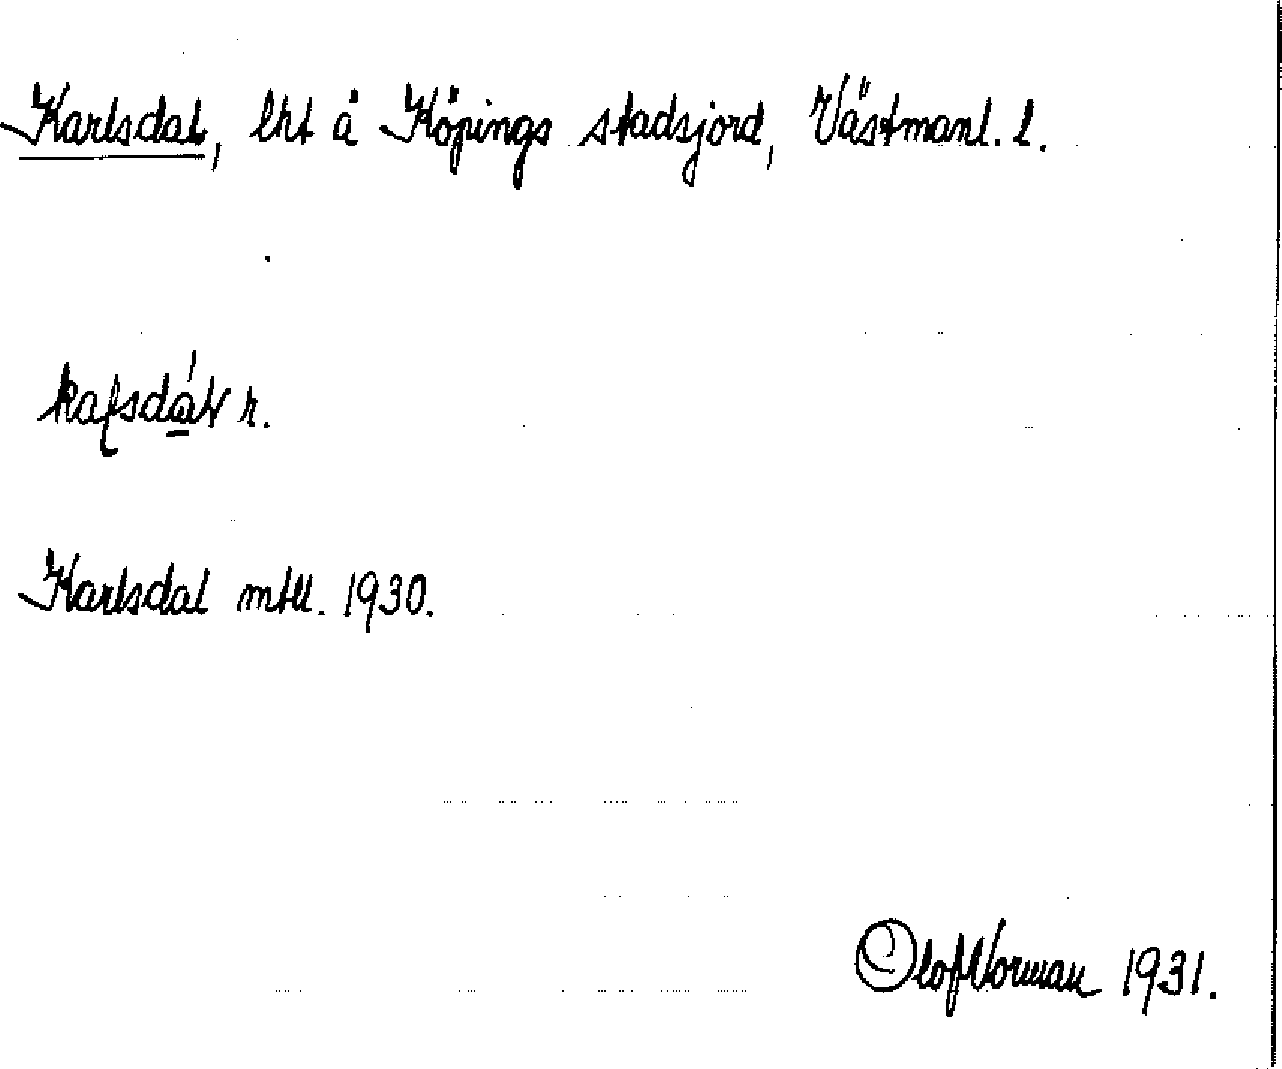 Karlsdal, lht å Köpings stadsjord, Västmanl. l.
r.
Karlsdal mtll. 1930.
Olof Norman 1931.